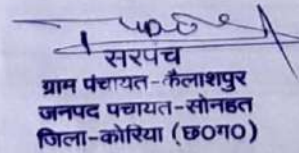 सरपंच
ग्राम पंचायत-कैलाशपुर
जनपद पचायत-सोनहत
जिला-कोरिया (छ0ग0)